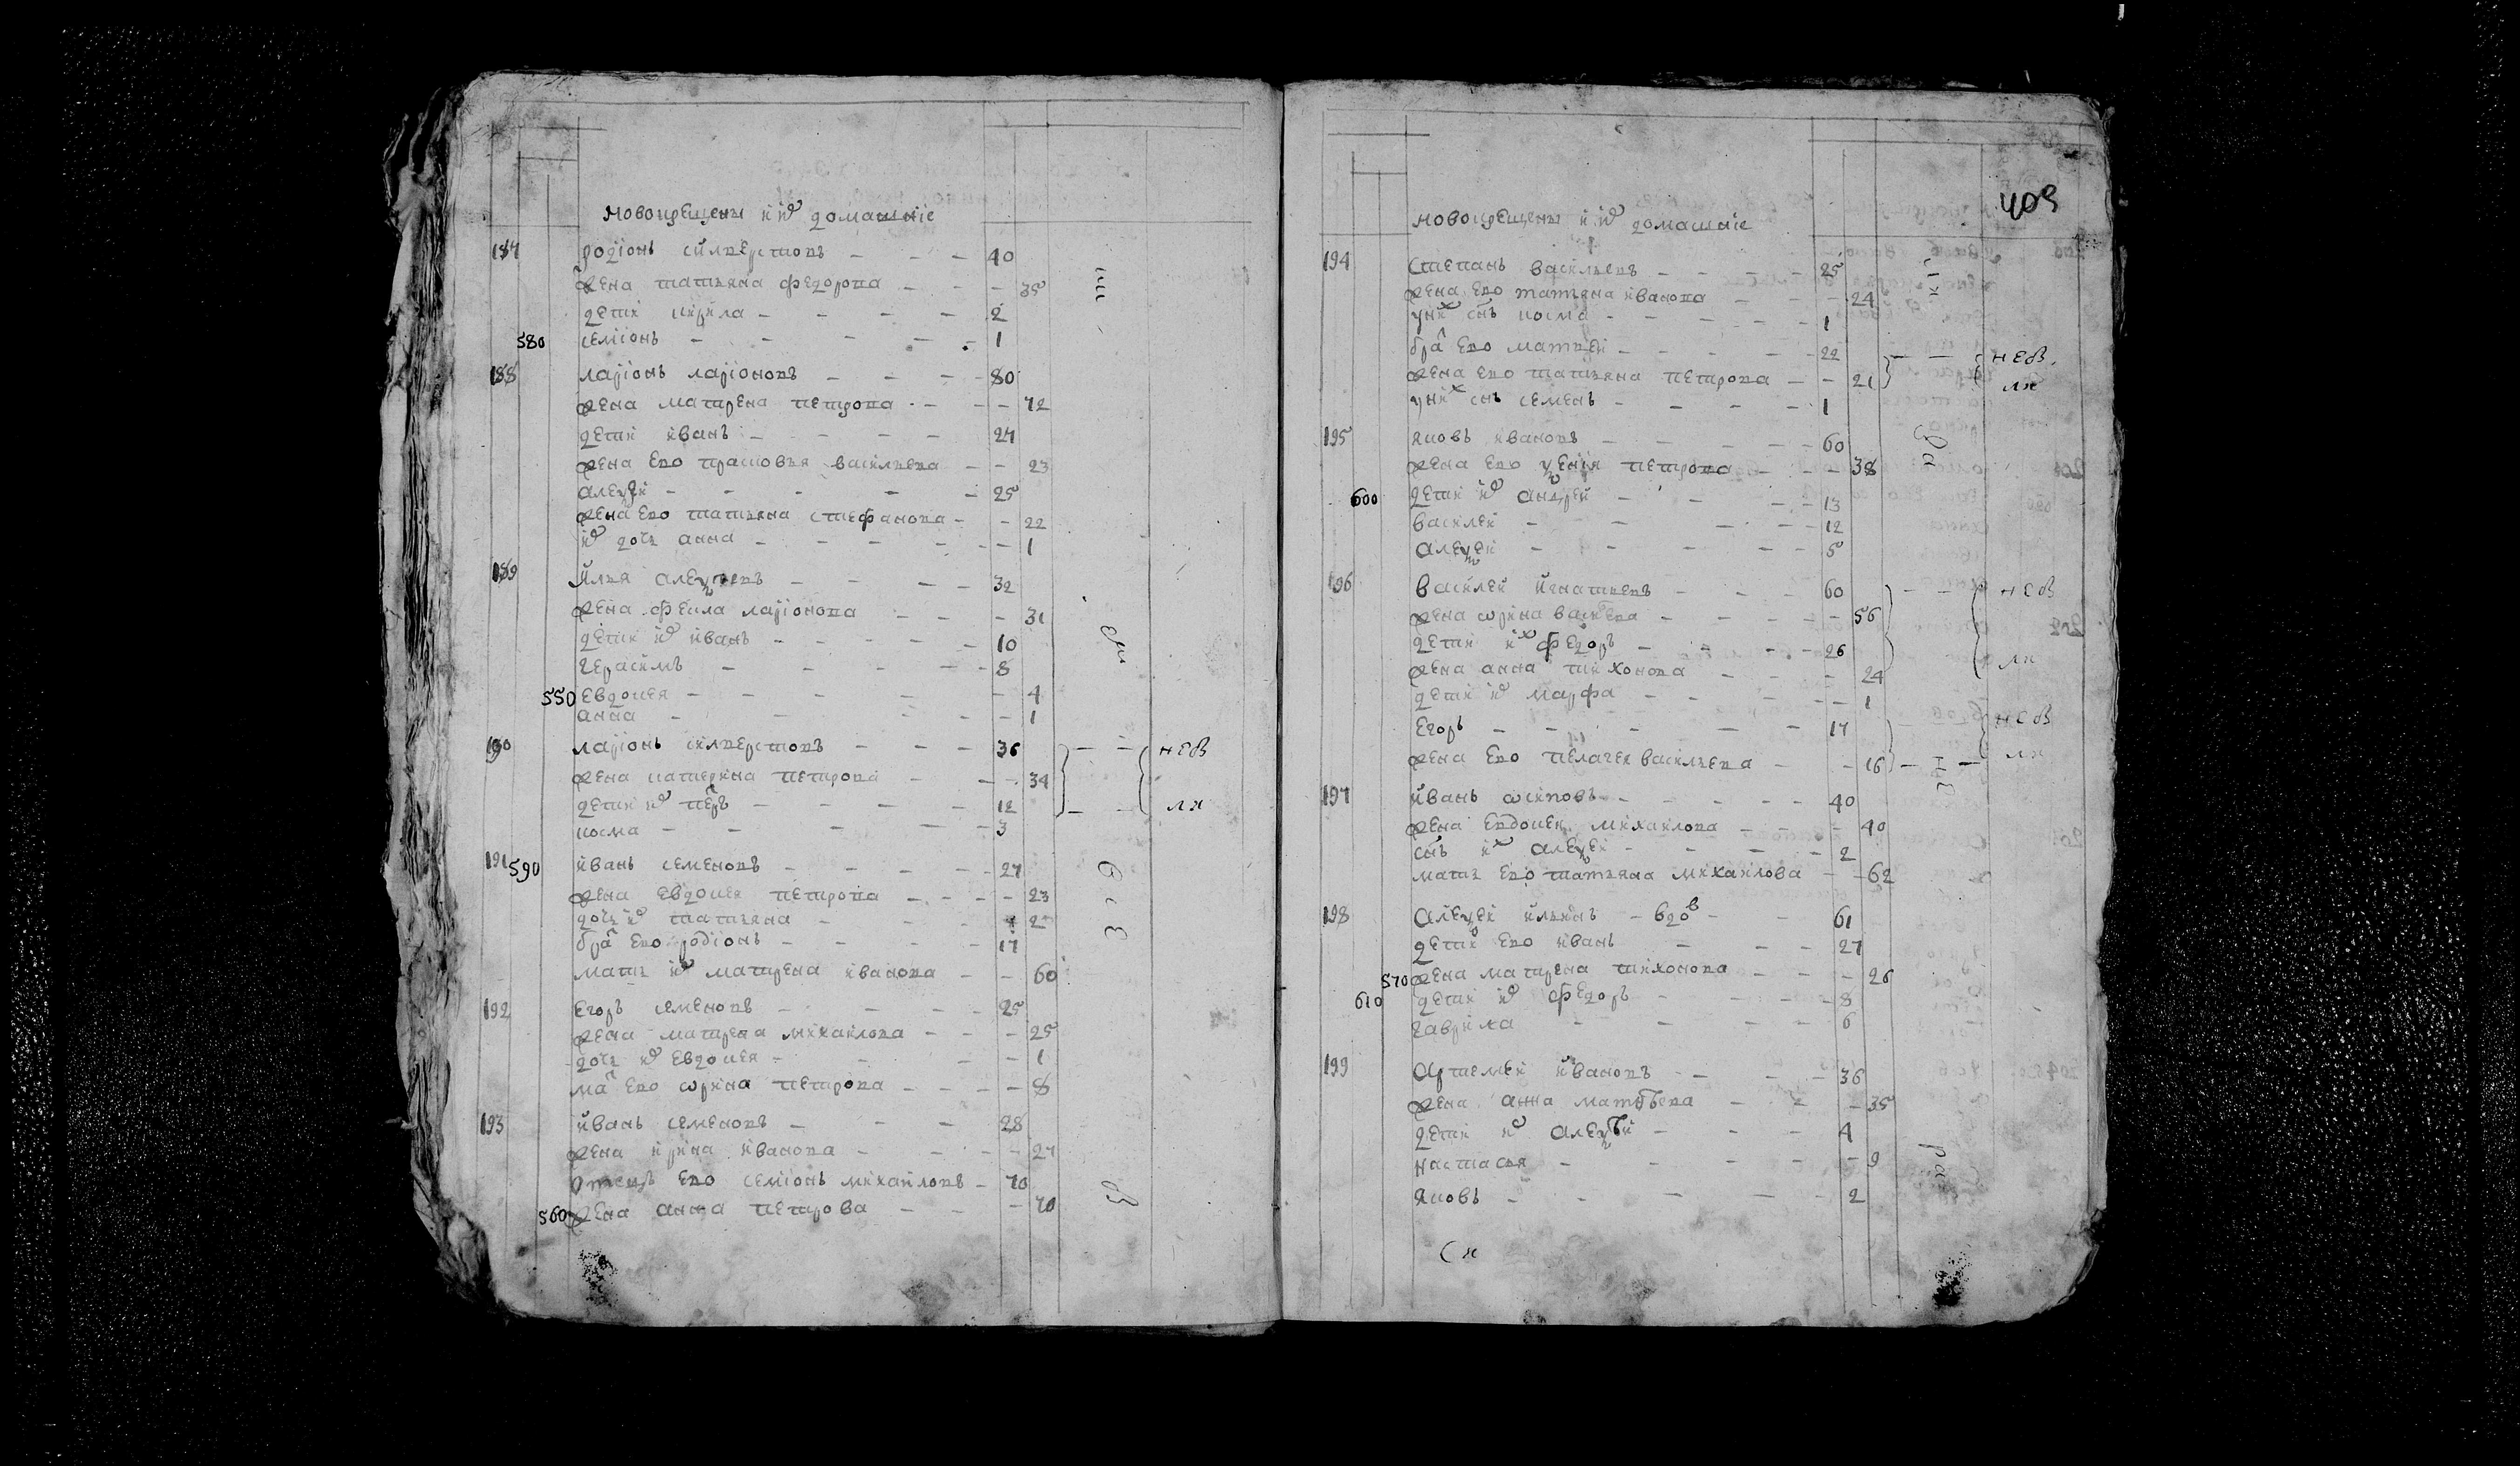 новокрещены и их домашние
187 родионъ силверстовъ - - - 40
жена татьяна федорова - - - 35
дети кирила - - - - 2
580 семионъ - - - - - 1
188 ларионъ ларионовъ - - - 80
жена матрена петрова - - - 72
дети иванъ - - - - 27
жена ево прасковья васильева - - 23
алеѯеи - - - - - 25
жена ево татьяна стефанова - - 22
их дочь анна - - - - - - 1
189 илья алеѯеевъ - - - - 32
жена фекла ларионова - - - 31
дети их иванъ - - - - - 10
герасимъ - - - - - 8
550 евдокея - - - - - 4
анна - - - - - 1
190 ларионъ силверстовъ - - - 36 - - нев
жена катерина петрова - - - 34
дети их петръ - - - - 12 - - ля
косма - - - - - 3
191 590 иванъ семеновъ - - - - - 27
жена евдокея петрова - - - - 23
дочь их татьяна - - - 2
бра ево родионъ - - - - 17
мать их матрена иванова - - 60
192 егоръ семеновъ - - - - 25
жена матрена михаилова - - - - 25
дочь их евдокея - - - - 1
ма ево ѡрина петрова - - - - 8
193 иванъ семеновъ - - - 28
жена ирина иванова - - - - 27
отецъ ево семионъ михаиловъ - 70
560 жена анна петрова - - - - 70
409
новокрещены и их домашние
194 степанъ васильевъ - - - - 25
жена ево татьяна иванова - - - 24
у них снъ косма - - - - - 1
бра ево матвеи - - - - - 22 - - нев
жена ево татьяна петрова - - 21 ля
у них снъ семенъ - - - - 1
195 яковъ ивановъ - - - - - 60
жена ево ѯения петрова - - - - 38
600 дети их андреи - - - - 13
василеи - - - - - 12
алеѯеи - - - - - 5
196 василеи игнатьевъ - - - 60 - - нев
жена ѡрина васильева - - - - - 56
дети их федоръ - - - - 26
жена анна тихонова - - - 24 ля
дети их марфа - - - - - 1
егоръ - - - - - 17 - нев
жена ево пелагея васильева - - 16 ля
197 иванъ ѡсиповъ - - - - - 40
жена евдокея михаилова - - - 40
снъ их алеѯеи - - - - 2
мать ево татьяна михаилова - - 62
198 алеѯеи ильинъ - вдов - - 61
дети ево иванъ - - - 27
570 жена матрена тихонова - - - 26
610 дети их федоръ - - - - 8
гаврила - - - - 6
199 артемеи ивановъ - - - - 36
жена анна матвѣева - - - 35
дети их алеѯѣи - - - - 4
настасья - - - - - 9
яковъ - - - - - 2